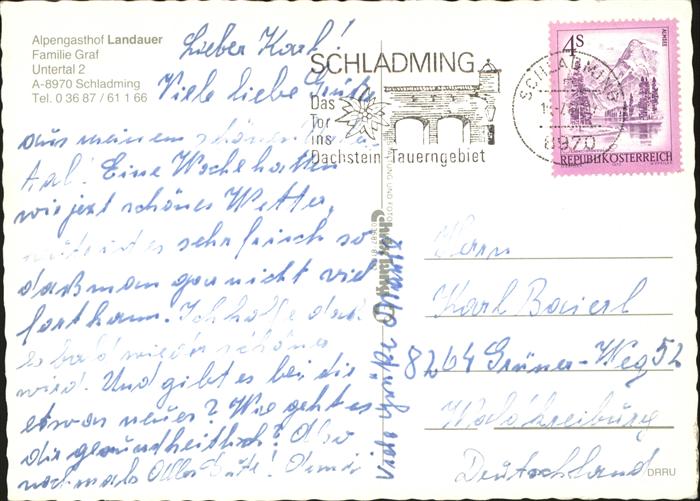 Alpengasthof Landauer
Familie Graf
Untertal 2
A-8970 Schladming
Tel. 0 36 87 / 61 1 66
Lieber Karl!
Viele liebe Grüße
aus meinem schönen
tal! Eine Woche hatten
wir jezt schönes Wetter,
heute ist es sehr frisch so
daß man gar nicht viel
fort kann. Ich hoffe daß
es bald wieder schönes
wird. Und gibt es bei dir
etwas neues? Wie geht es
dir gesundheitlich? Also
nochmals Alles Gute!
viele Grüße
SCHLADMING
Das
Tor
ins
Dachstein-Tauerngebiet
SCHLADMING
8970
4 S
ALMSEE
REPUBLIK ÖSTERREICH
Herrn
Karl Baierl
8264 Grüner-Weg 52
Waldkreiburg
Deutschland
DRRU